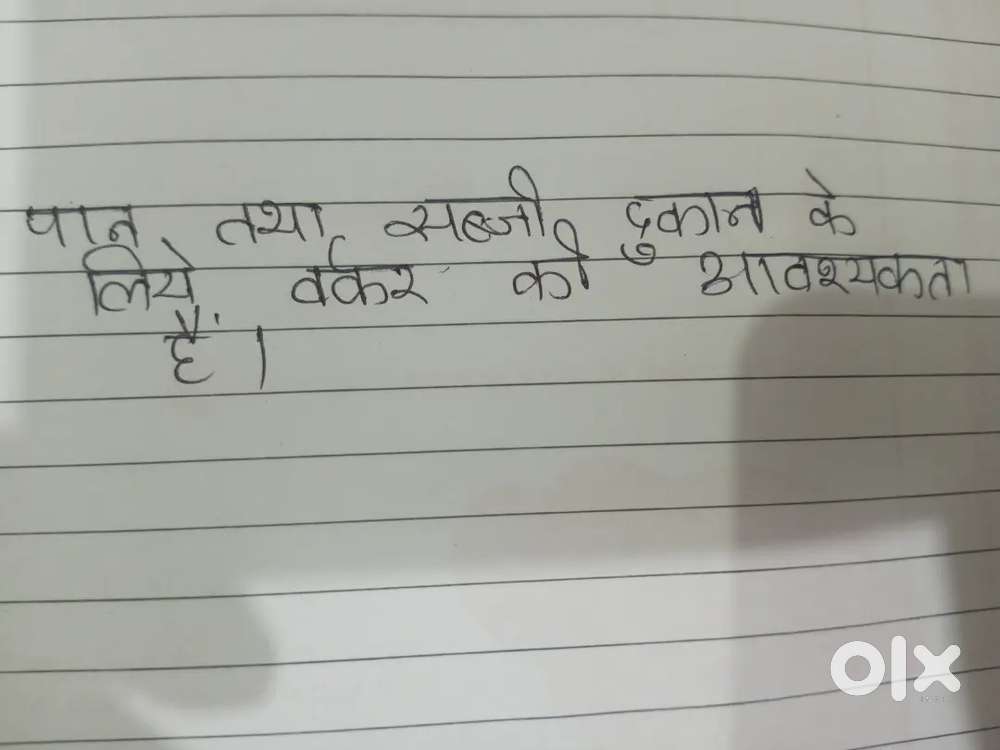 पान तथा सब्जी दुकान के
लिये वर्कर की आवश्यकता
है।
olx